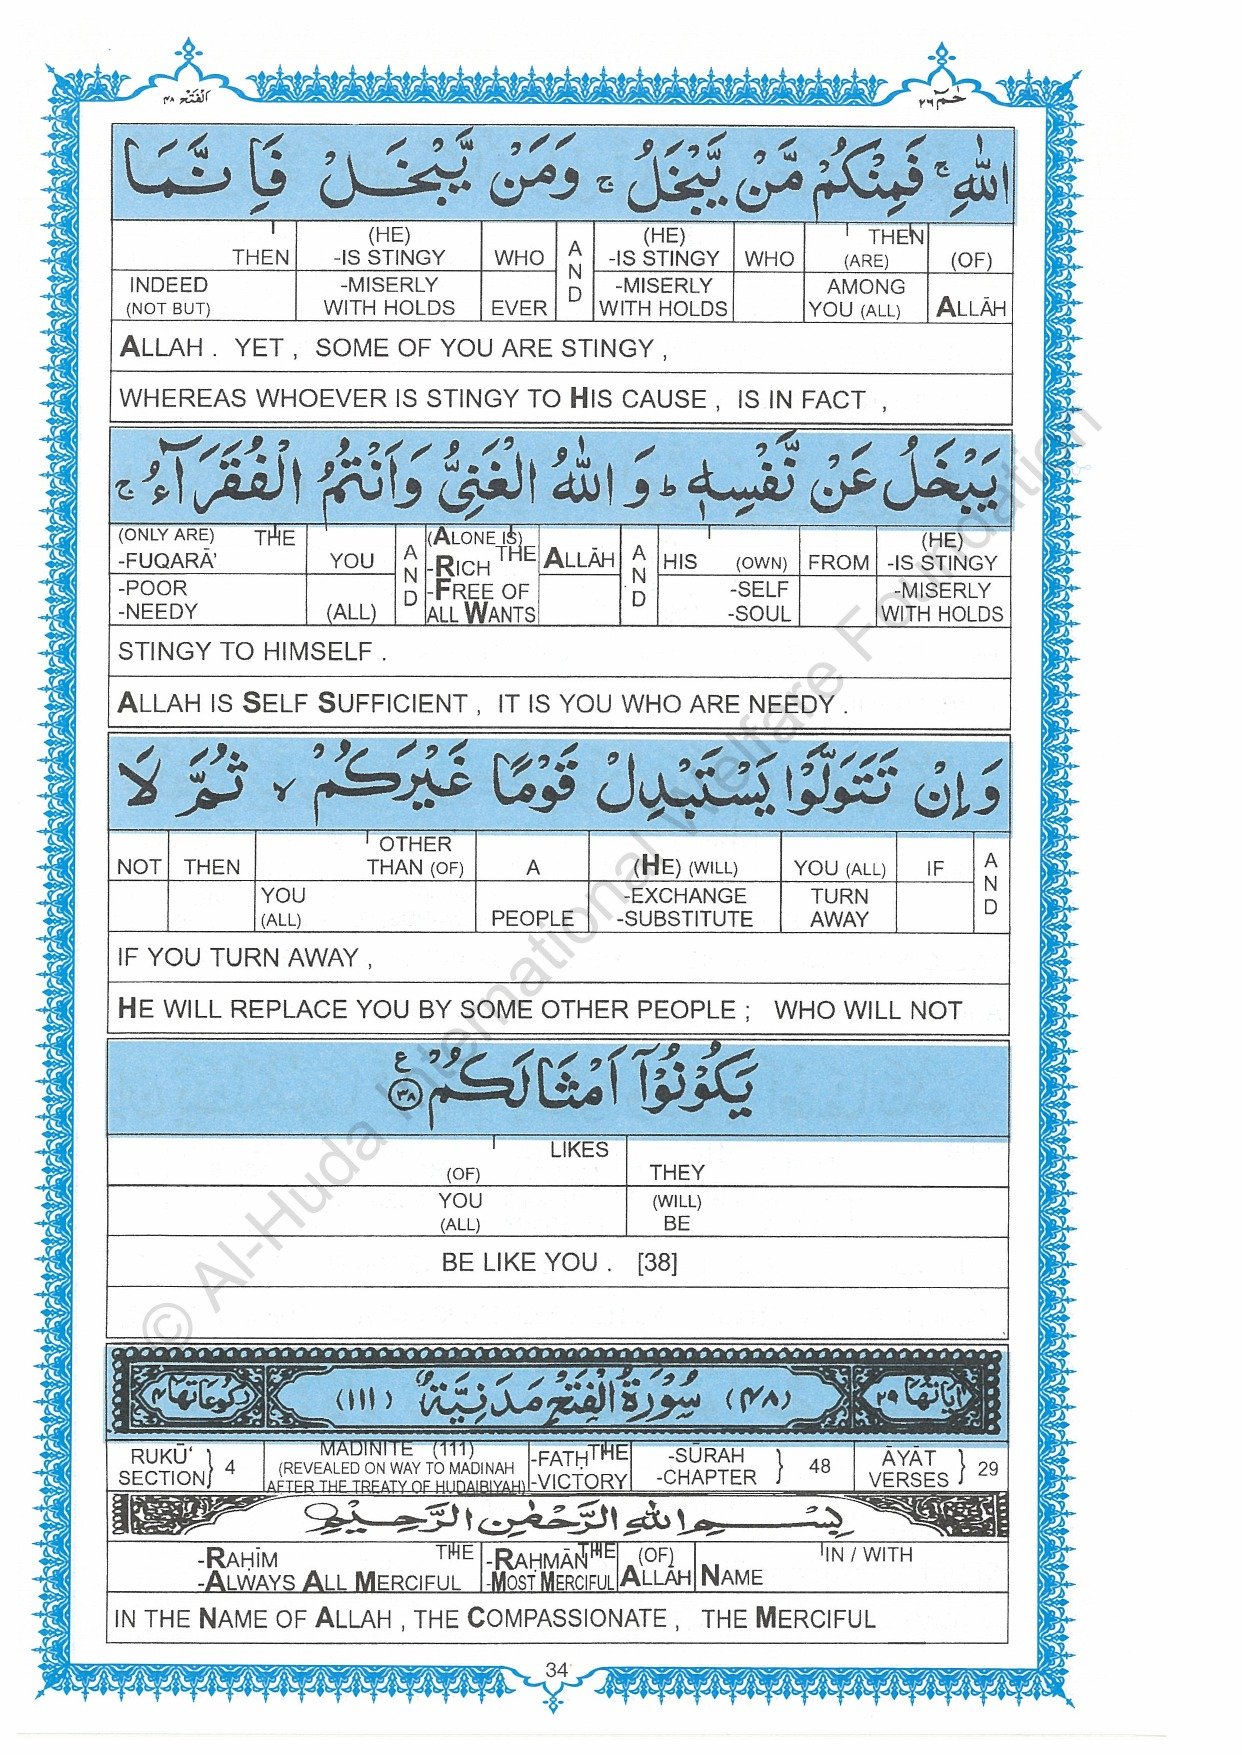 اَلْفَتْح ٤٨
حٰمٓ ٢٦
اللّٰهِ ۚ فَمِنْكُمْ مَّنْ يَّبْخَلُ ۚ وَمَنْ يَّبْخَلْ فَاِنَّمَا
THEN (HE) -IS STINGY WHO AND (HE) -IS STINGY WHO THEN (ARE) (OF)
INDEED (NOT BUT) -MISERLY WITH HOLDS EVER -MISERLY WITH HOLDS AMONG YOU (ALL) ALLĀH
ALLAH . YET , SOME OF YOU ARE STINGY ,
WHEREAS WHOEVER IS STINGY TO HIS CAUSE , IS IN FACT ,
يَبْخَلُ عَنْ نَّفْسِهٖ ؕ وَ اللّٰهُ الْغَنِيُّ وَاَنْتُمُ الْفُقَرَآءُ ۚ
(ONLY ARE) THE -FUQARĀ’ YOU AND (ALONE IS) THE -RICH ALLĀH AND HIS (OWN) FROM (HE) -IS STINGY
-POOR -NEEDY (ALL) -FREE OF ALL WANTS -SELF -SOUL -MISERLY WITH HOLDS
STINGY TO HIMSELF .
ALLAH IS SELF SUFFICIENT , IT IS YOU WHO ARE NEEDY .
وَاِنْ تَتَوَلَّوْا يَسْتَبْدِلْ قَوْمًا غَيْرَكُمْ ۙ ثُمَّ لَا
NOT THEN OTHER THAN (OF) A (HE) (WILL) YOU (ALL) IF AND
YOU (ALL) PEOPLE -EXCHANGE -SUBSTITUTE TURN AWAY
IF YOU TURN AWAY ,
HE WILL REPLACE YOU BY SOME OTHER PEOPLE ; WHO WILL NOT
يَكُوْنُوْٓا اَمْثَالَكُمْ ٣٨ ع
LIKES (OF) THEY
YOU (ALL) (WILL) BE
BE LIKE YOU . [38]
اٰيَاتُهَا ٢٩ (٤٨) سُوْرَةُ الْفَتْحِ مَدَنِيَّةٌ (١١١) رُكُوْعَاتُهَا ٤
RUKŪ‘ SECTION } 4 MADINITE (111) (REVEALED ON WAY TO MADINAH AFTER THE TREATY OF HUDAIBIYAH) THE -FATḤ -VICTORY -SŪRAH -CHAPTER } 48 ĀYĀT VERSES } 29
بِسْمِ اللّٰهِ الرَّحْمٰنِ الرَّحِيْمِ
-RAḤĪM THE -RAHMĀN THE (OF) IN / WITH
-ALWAYS ALL MERCIFUL -MOST MERCIFUL ALLĀH NAME
IN THE NAME OF ALLAH , THE COMPASSIONATE , THE MERCIFUL
34
© Al-Huda International Welfare Foundation